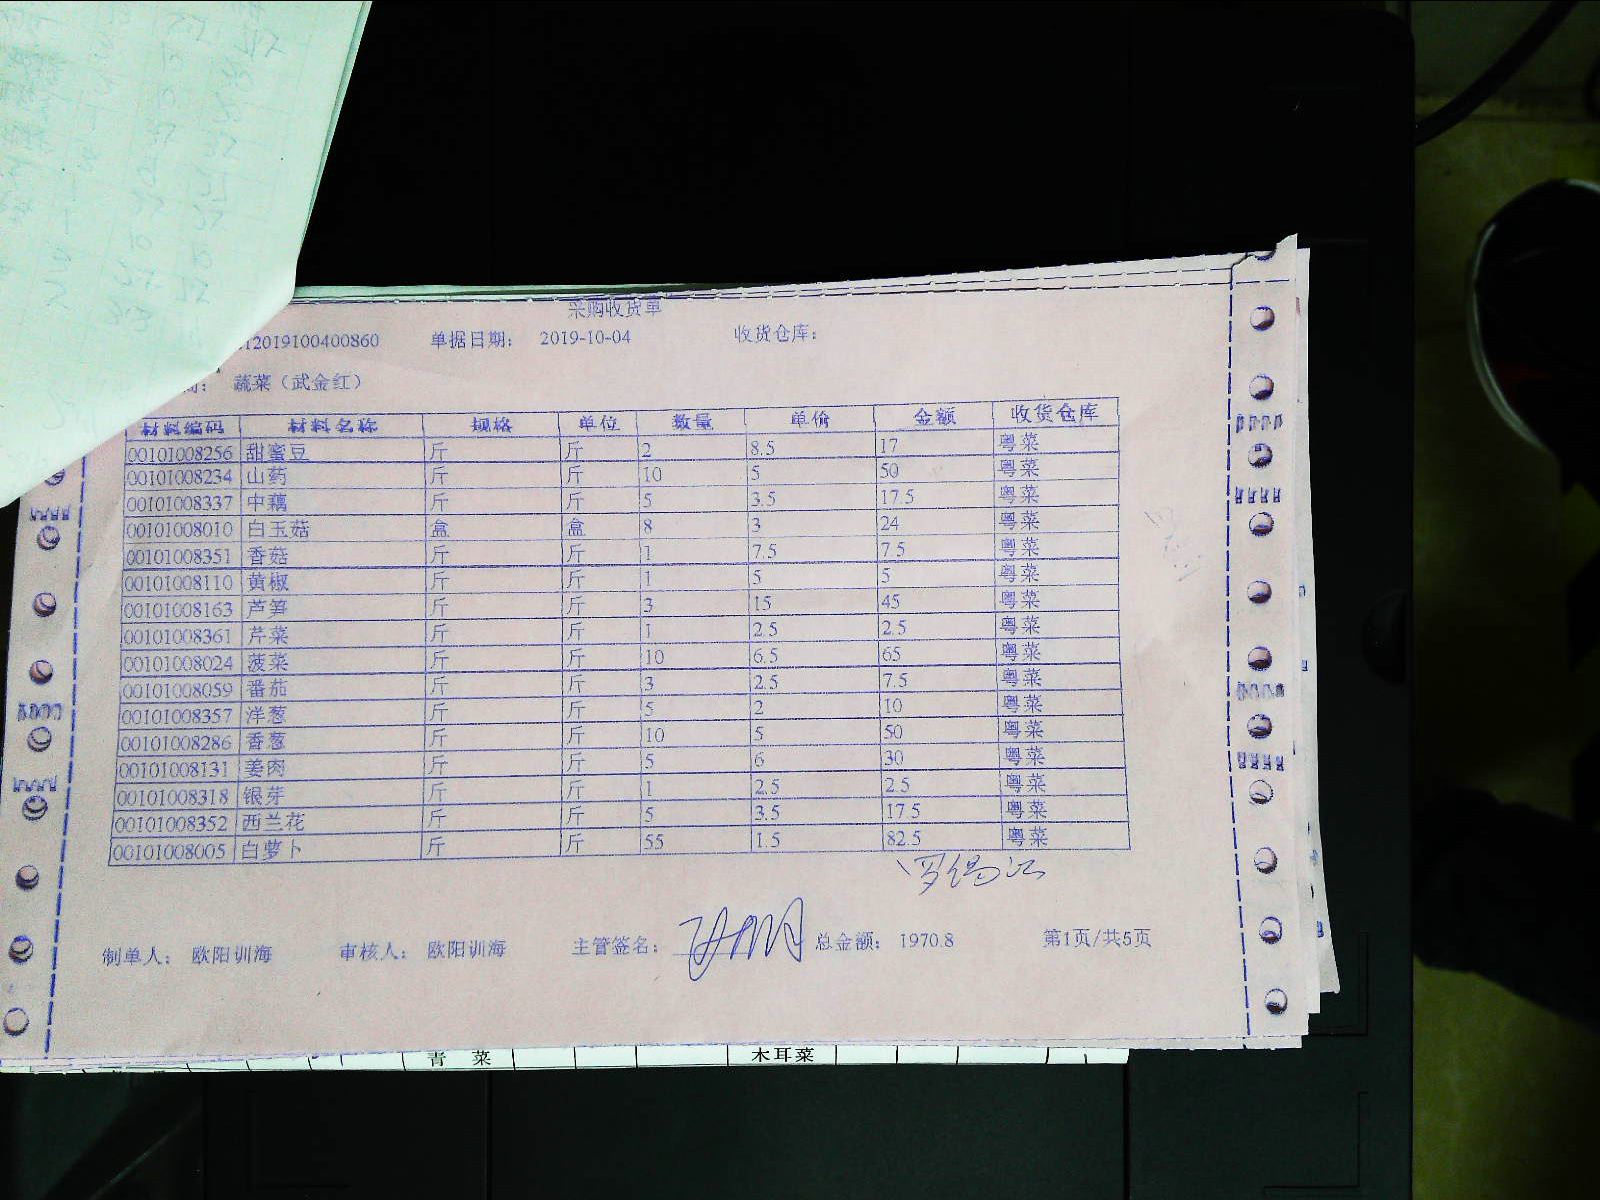 采购收货单
12019100400860 单据日期： 2019-10-04 收货仓库：
蔬菜（武金红）
材料编码 材料名称 规格 单位 数量 单价 金额 收货仓库
00101008256 甜蜜豆 斤 斤 2 8.5 17 粤菜
00101008234 山药 斤 斤 10 5 50 粤菜
00101008337 中藕 斤 斤 5 3.5 17.5 粤菜
00101008010 白玉菇 盒 盒 8 3 24 粤菜
00101008351 香菇 斤 斤 1 7.5 7.5 粤菜
00101008110 黄椒 斤 斤 1 5 5 粤菜
00101008163 芦笋 斤 斤 3 15 45 粤菜
00101008361 芹菜 斤 斤 1 2.5 2.5 粤菜
00101008024 菠菜 斤 斤 10 6.5 65 粤菜
00101008059 番茄 斤 斤 3 2.5 7.5 粤菜
00101008357 洋葱 斤 斤 5 2 10 粤菜
00101008286 香葱 斤 斤 10 5 50 粤菜
00101008131 姜肉 斤 斤 5 6 30 粤菜
00101008318 银芽 斤 斤 1 2.5 2.5 粤菜
00101008352 西兰花 斤 斤 5 3.5 17.5 粤菜
00101008005 白萝卜 斤 斤 55 1.5 82.5 粤菜
制单人： 欧阳训海 审核人： 欧阳训海 主管签名： 总金额： 1970.8 第1页/共5页
青 菜 木耳菜